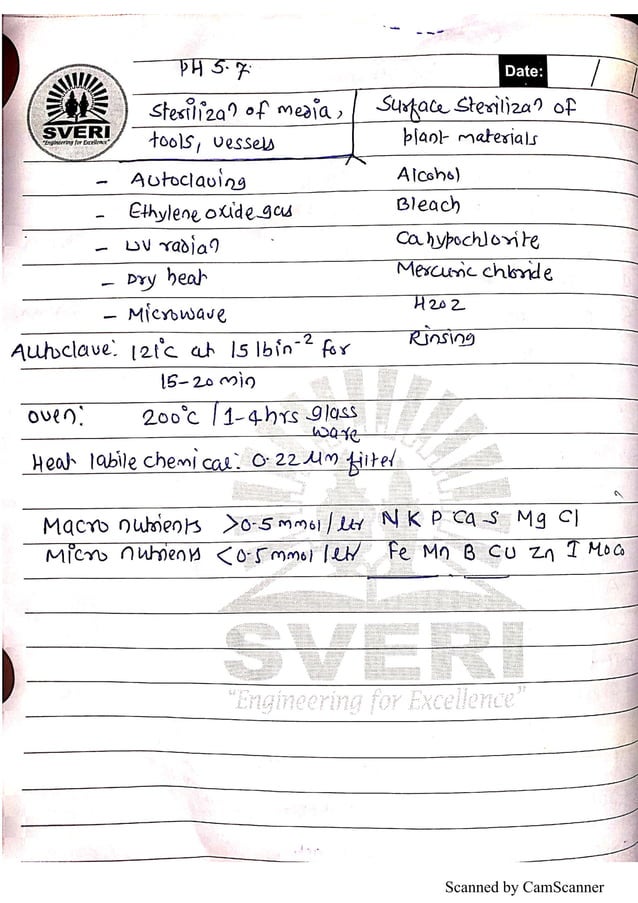 PH 5.7
Date:
SVERI
"Engineering for Excellence"
Sterilizan of media, tools, vessels | Surface Sterilizan of plant materials
- Autoclaving Alcohol
- Ethylene oxide gas Bleach
- UV radian Ca hypochlorite
- Dry heat Mercuric chloride
- Microwave H2O2
Rinsing
Autoclave: 121°C at 15 lbin-2 for
15-20 min
Oven: 200°C / 1-4 hrs glass
ware
Heat labile chemical: 0.22 µm filter
Macro nutrients >0.5 mmol / ltr N K P Ca S Mg Cl
Micro nutrients <0.5 mmol / ltr Fe Mn B Cu Zn I Mo Co
SVERI
"Engineering for Excellence"
Scanned by CamScanner